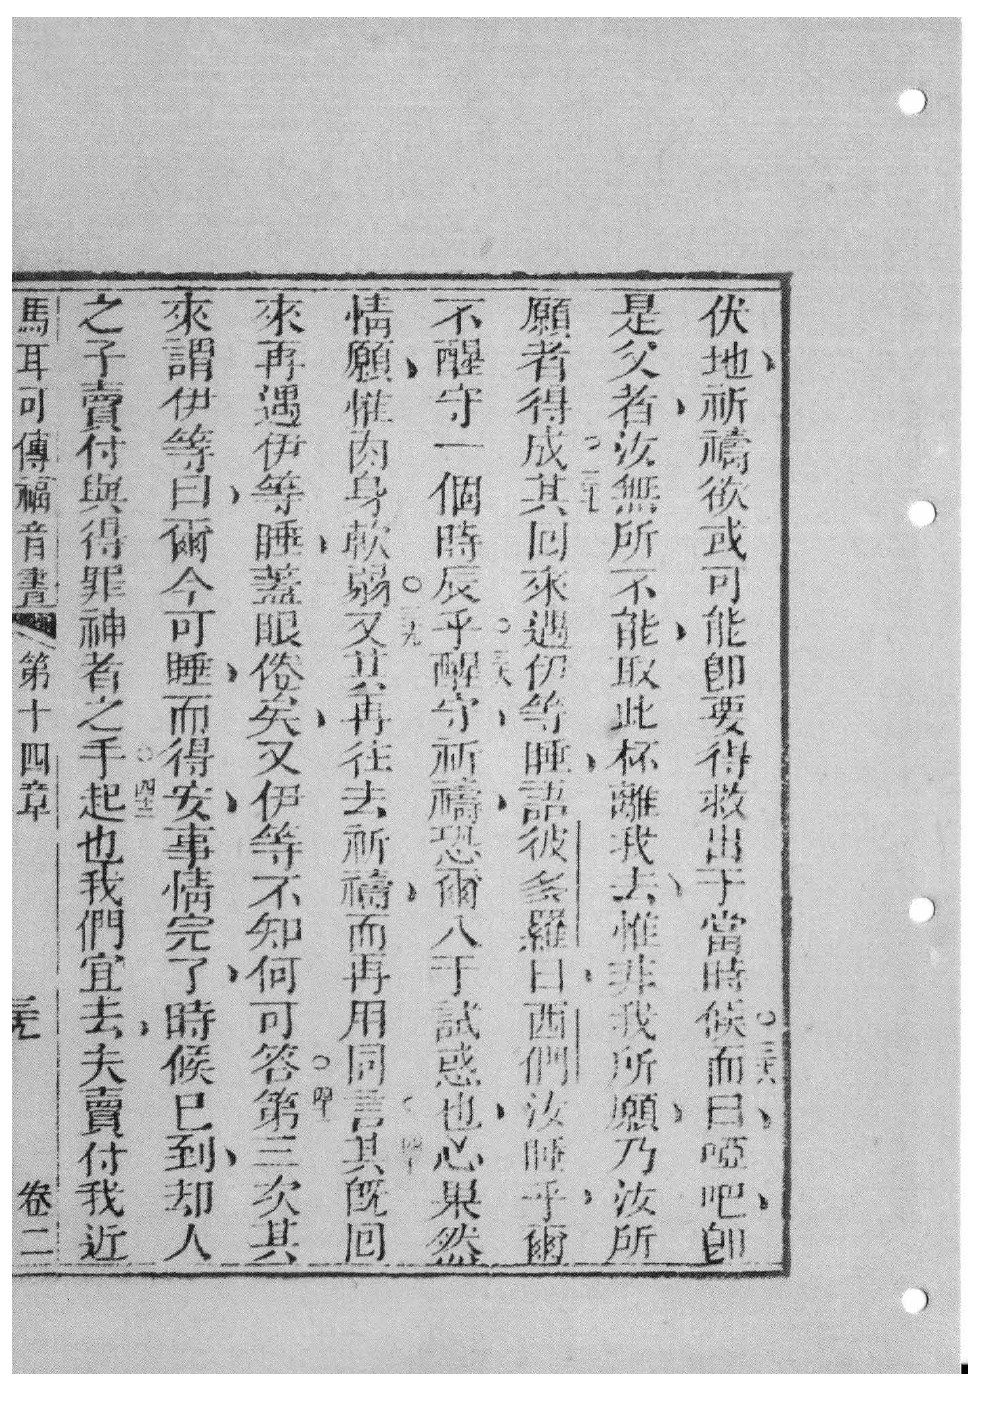 伏地、祈禱欲或可能卽要得救出于當時候○三六而曰、啞吧、卽
是父者、汝無所不能、取此杯離我去、惟非我所願、乃汝所
願者得成○三七其回來遇伊等睡、語彼多羅曰、西們汝睡乎、爾
不醒守一個時辰乎○三八醒守、祈禱、恐爾入于試惑也、心果然
情願、惟肉身軟弱○三九又其再往去祈禱、而再用同言○四十其旣回
來再遇伊等睡、蓋眼倦矣、又伊等不知何可答○四一第三次其
來謂伊等曰、爾今可睡、而得安、事情完了、時候已到、却人
之子賣付與得罪神者之手○四二起也我們宜去、夫賣付我近
馬耳可傳福音書 第十四章 三九 卷二